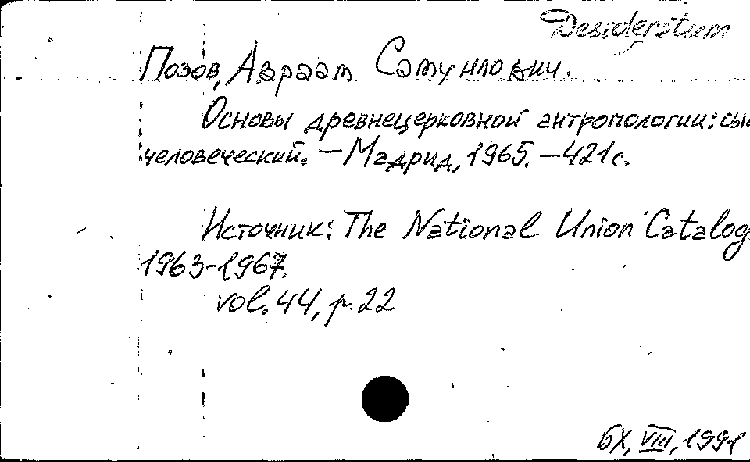 Desideratum
Позов, Авраам Самуилович.
Основы древнецерковной антропологии: сын
человеческий. — Мадрид, 1965. — 421 с.
Источник: The National Union Catalog
1963-1967.
vol. 44, p. 22
БХ, VIII, 1991